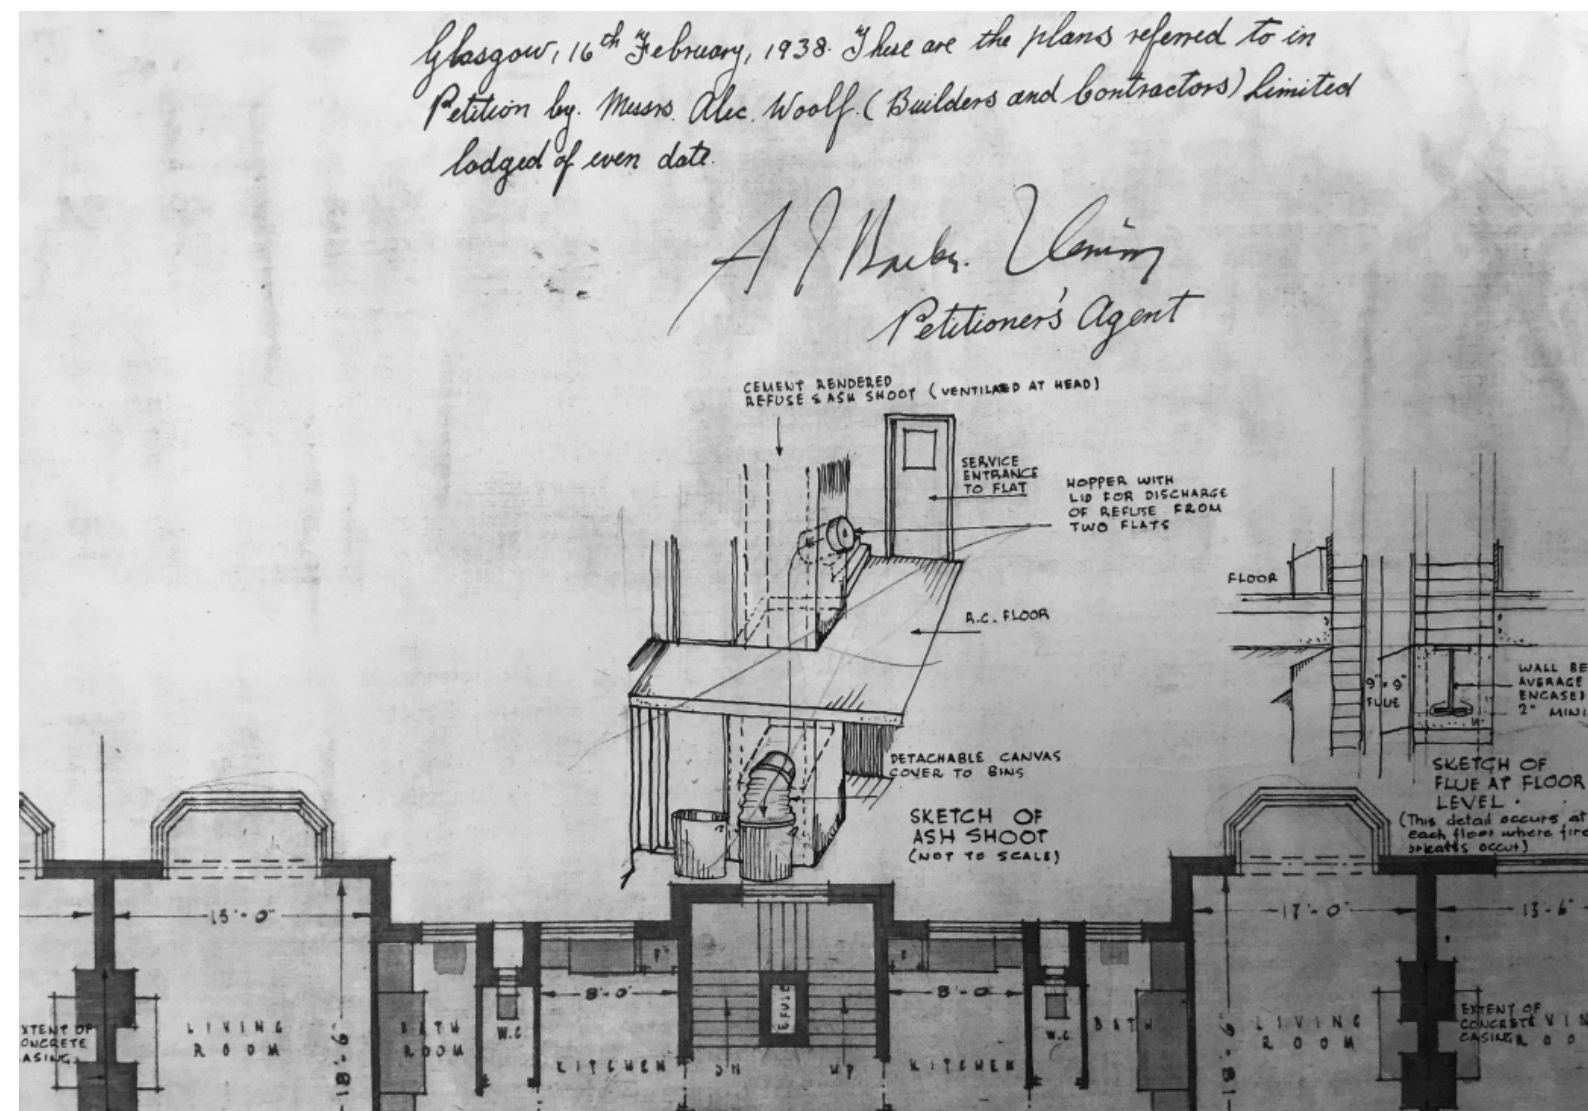 Glasgow, 16th February, 1938. These are the plans referred to in
Petition by. Messrs. Alec. Woolf. (Builders and Contractors) Limited
lodged of even date.
A J
Petitioner's Agent
CEMENT RENDERED
REFUSE & ASH SHOOT (VENTILATED AT HEAD)
SERVICE
ENTRANCE
TO FLAT
HOPPER WITH
LID FOR DISCHARGE
OF REFUSE FROM
TWO FLATS
R.C. FLOOR
DETACHABLE CANVAS
COVER TO BINS
SKETCH OF
ASH SHOOT
(NOT TO SCALE)
FLOOR
9" × 9"
FLUE
WALL BE
AVERAGE
ENCASE
2" MINI
SKETCH OF
FLUE AT FLOOR
LEVEL.
(This detail occurs at
each floor where fire
breasts occur)
15'-0"
17'-0"
13'-6"
8'-0"
8'-0"
XTENT OF
ONCRETE
ASING.
LIVING
ROOM
18'-6"
BATH
ROOM
W.C
KITCHEN
DN
UP
KITCHEN
W.C.
BATH
LIVING
ROOM
EXTENT OF
CONCRETE
CASING